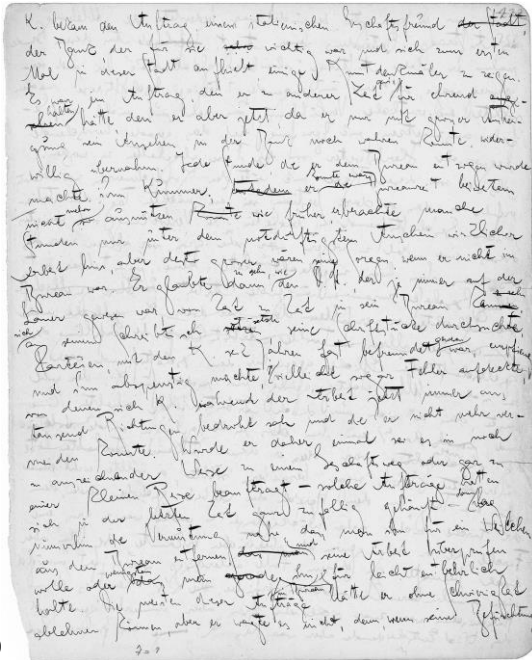 K. bekam den Auftrag einem italienischen Geschäftsfreund der Stadt,
der Bank der für sie sehr wichtig war und sich zum ersten
Mal in dieser Stadt aufhielt einige Kunstdenkmäler zu zeigen.
Es war ein Auftrag den er zu anderer Zeit gewiß für ehrend
gehalten hätte den er aber jetzt da er nur mit großer Anstren-
gung sein Ansehen in der Bank noch wahren konnte, wider-
willig übernahm. Jede Stunde die er dem Bureau entzogen wurde
machte ihm Kummer, trotzdem er konnte zwar die Bureauzeit bei weitem
nicht mehr so ausnützen konnte wie früher, er brachte manche
Stunden nur unter dem notdürftigsten Anschein wirklicher
Arbeit hin, aber desto größer waren seine Sorgen wenn er nicht im
Bureau war. Er glaubte dann zu sehn, wie der D. St. der ja immer auf der
Lauer gewesen war von Zeit zu Zeit in sein Bureau kam
sich an seinen Schreibtisch setzte seine Schriftstücke durchsuchte
Parteien, mit denen K. seit Jahren fast befreundet gewesen war empfieng
und ihm abspenstig machte vielleicht sogar Fehler aufdeckte
von denen sich K. während der Arbeit jetzt immer aus
tausend Richtungen bedroht sah und die er nicht mehr ver-
meiden konnte. Wurde er daher einmal sei es in noch
so auszeichnender Weise zu einem Geschäftsweg oder gar zu
einer kleinen Reise beauftragt – solche Aufträge hatten
sich in der letzten Zeit ganz zufällig gehäuft – dann lag
immerhin die Vermutung nahe daß man ihn für ein Weilchen
aus dem Bureau entfernen und seine Arbeit überprüfen
wolle oder wenigstens daß man ihn im Bureau für leicht entbehrlich
halte. Die meisten dieser Aufträge hätte er ohne Schwierigkeit
ablehnen können aber er wagte es nicht, denn wenn seine Befürchtung